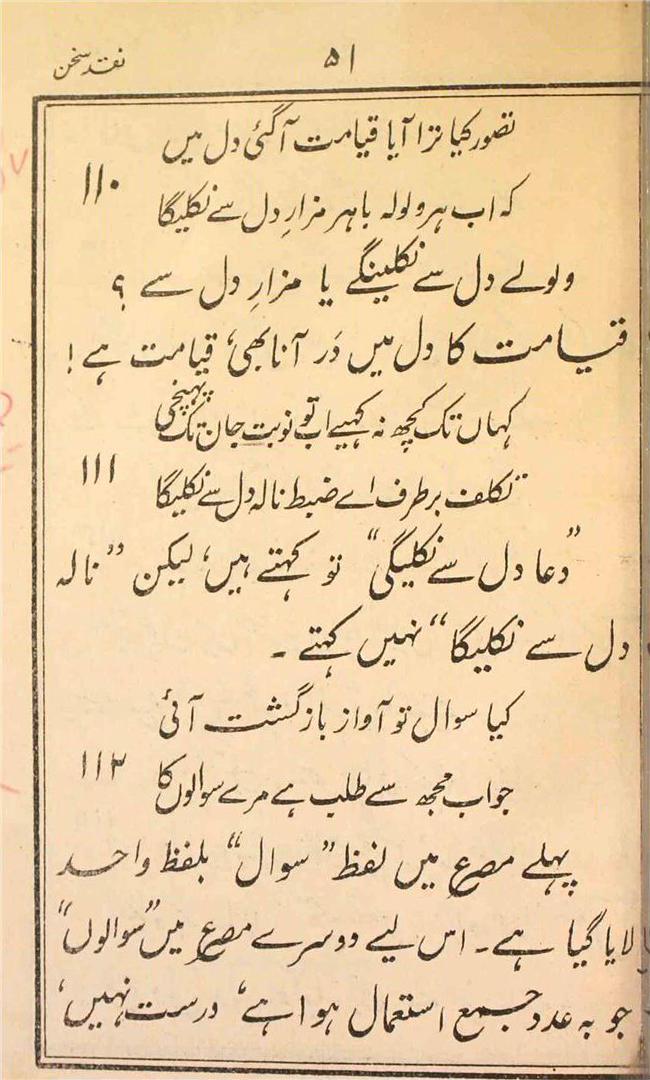 نقد سخن
۵۱
تصور کیا ترا آیا قیامت آگئی دل میں
۱۱۰
کہ اب ہر ولولہ باہر مزارِ دل سے نکلیگا
ولولے دل سے نکلینگے یا مزارِ دل سے ؟
قیامت کا دل میں دَر آنا بھی، قیامت ہے !
کہاں تک کچھ نہ کہیے اب تو نوبت جان تک پہنچی
۱۱۱
تکلف بر طرف اے ضبط نالہ دل سے نکلیگا
”دعا دل سے نکلیگی“ تو کہتے ہیں، لیکن ”نالہ
دل سے نکلیگا“ نہیں کہتے ۔
کیا سوال تو آواز بازگشت آئی
۱۱۲
جواب مجھ سے طلب ہے مرے سوالوں کا
پہلے مصرع میں لفظ ”سوال“ بلفظ واحد
لایا گیا ہے ۔ اس لیے دوسرے مصرع میں ”سوالوں“
جو بہ عدد جمع استعمال ہوا ہے، درست نہیں،